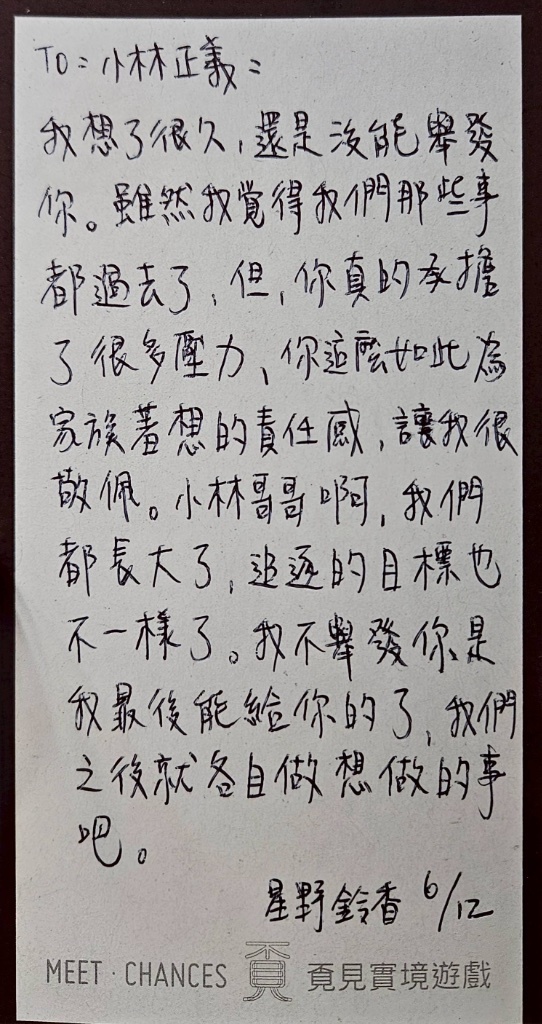 TO：小林正義：
我想了很久，還是沒能舉發
你。雖然我覺得我們那些事
都過去了，但，你真的承擔
了很多壓力、你這麼如此為
家族著想的責任感，讓我很
敬佩。小林哥哥啊，我們
都長大了，追逐的目標也
不一樣了。我不舉發你是
我最後能給你的了，我們
之後就各自做想做的事
吧。
星野鈴香 6/12
MEET · CHANCES 覔見實境遊戲